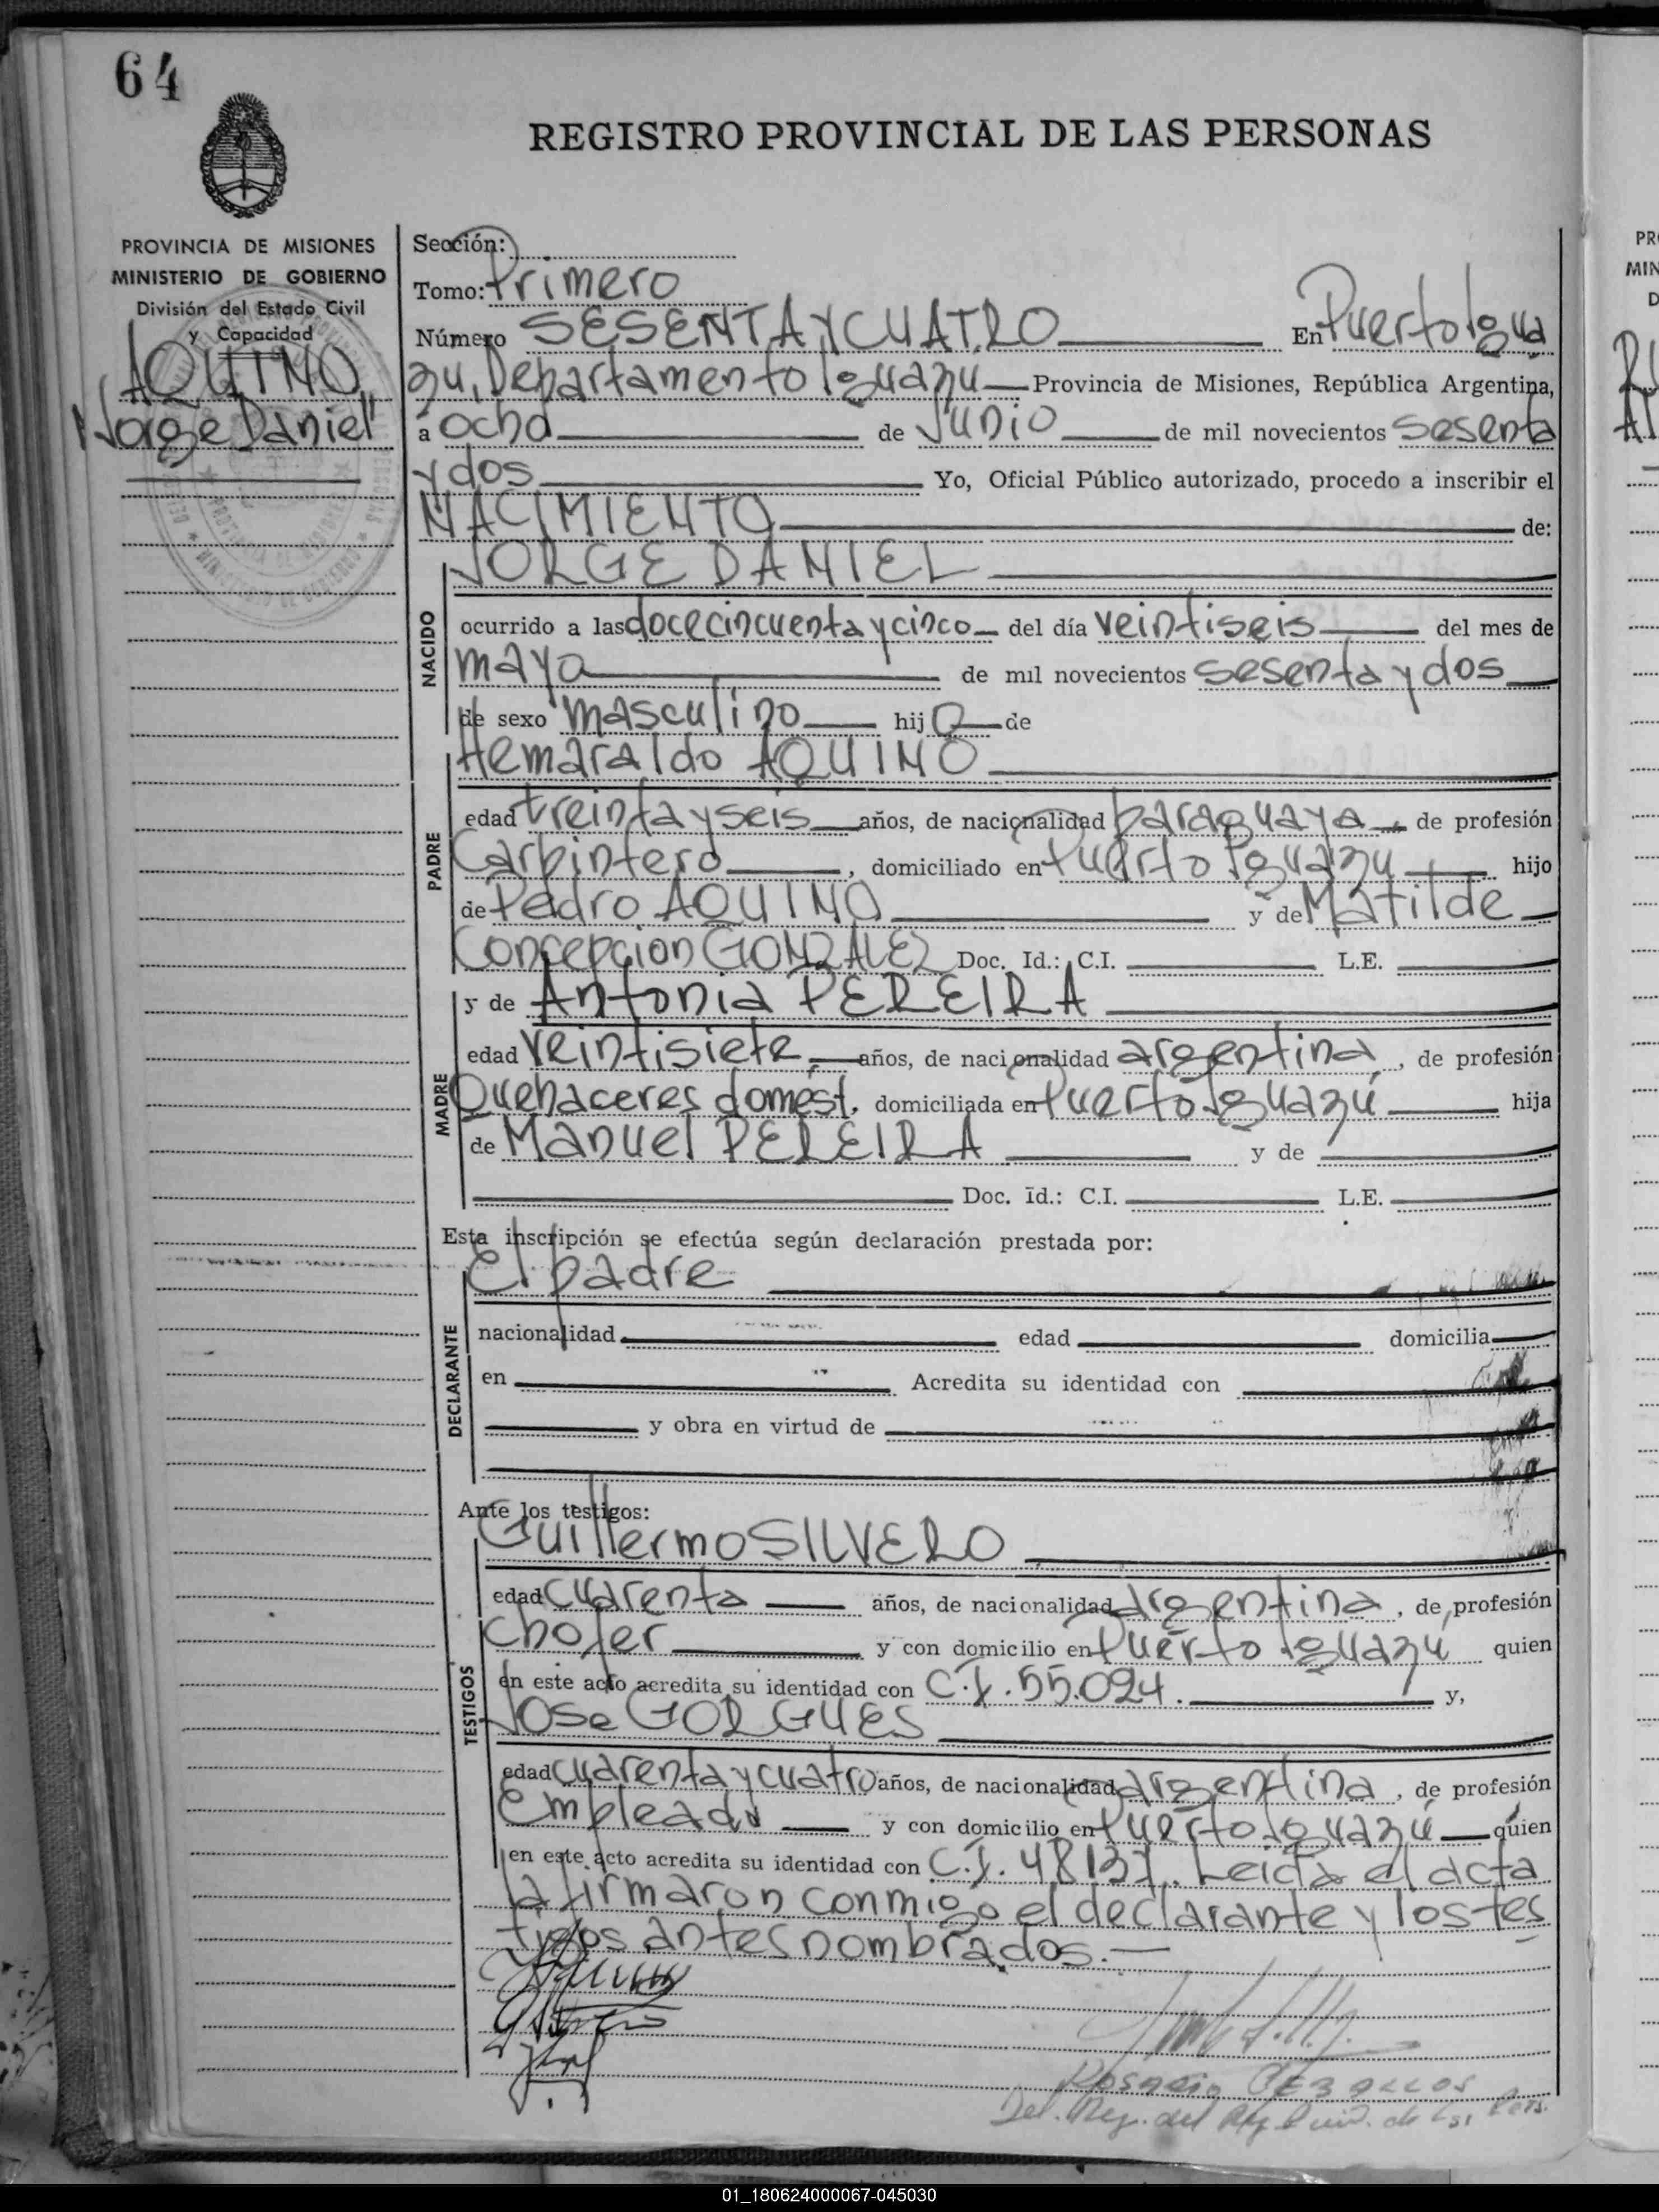 64
REGISTRO PROVINCIAL DE LAS PERSONAS
PROVINCIA DE MISIONES
MINISTERIO DE GOBIERNO
División del Estado Civil
y Capacidad
AQUINO
"Jorge Daniel"
Sección:
Tomo: Primero
Número SESENTA Y CUATRO En Puerto Igua
zu, Departamento Iguazu Provincia de Misiones, República Argentina,
a ocho de Junio de mil novecientos sesenta
y dos Yo, Oficial Público autorizado, procedo a inscribir el
NACIMIENTO de:
JORGE DANIEL
NACIDO
ocurrido a las doce cincuenta y cinco del día veintiseis del mes de
mayo de mil novecientos sesenta y dos
de sexo masculino hijo de
Hemaraldo AQUINO
PADRE
edad treinta y seis años, de nacionalidad paraguaya de profesión
Carpintero, domiciliado en Puerto Iguazu hijo
de Pedro AQUINO y de Matilde
Concepcion GONZALEZ Doc. Id.: C.I. L.E.
y de Antonia PEREIRA
MADRE
edad veintisiete años, de nacionalidad argentina, de profesión
Quehaceres domést. domiciliada en Puerto Iguazú hija
de Manuel PEREIRA y de
Doc. Id.: C.I. L.E.
Esta inscripción se efectúa según declaración prestada por:
El padre
DECLARANTE
nacionalidad edad domicilia
en Acredita su identidad con
y obra en virtud de
Ante los testigos:
Guillermo SILVERO
TESTIGOS
edad cuarenta años, de nacionalidad argentina, de profesión
chofer y con domicilio en Puerto Iguazú quien
en este acto acredita su identidad con C.I. 55.024. y,
Jose GORGUES
edad cuarenta y cuatro años, de nacionalidad argentina, de profesión
Empleado y con domicilio en Puerto Iguazú quien
en este acto acredita su identidad con C.I. Leida el acta
la firmaron conmigo el declarante y los tes
tigos antes nombrados.
01_180624000067-045030